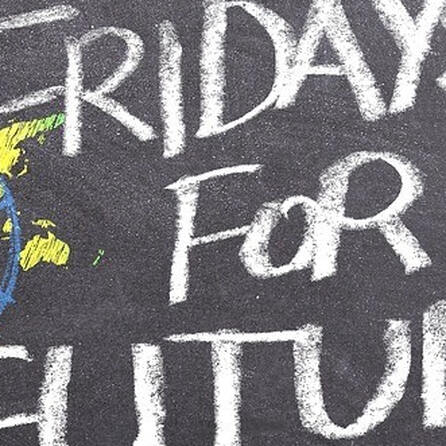 FRIDAY
FOR
FUTU